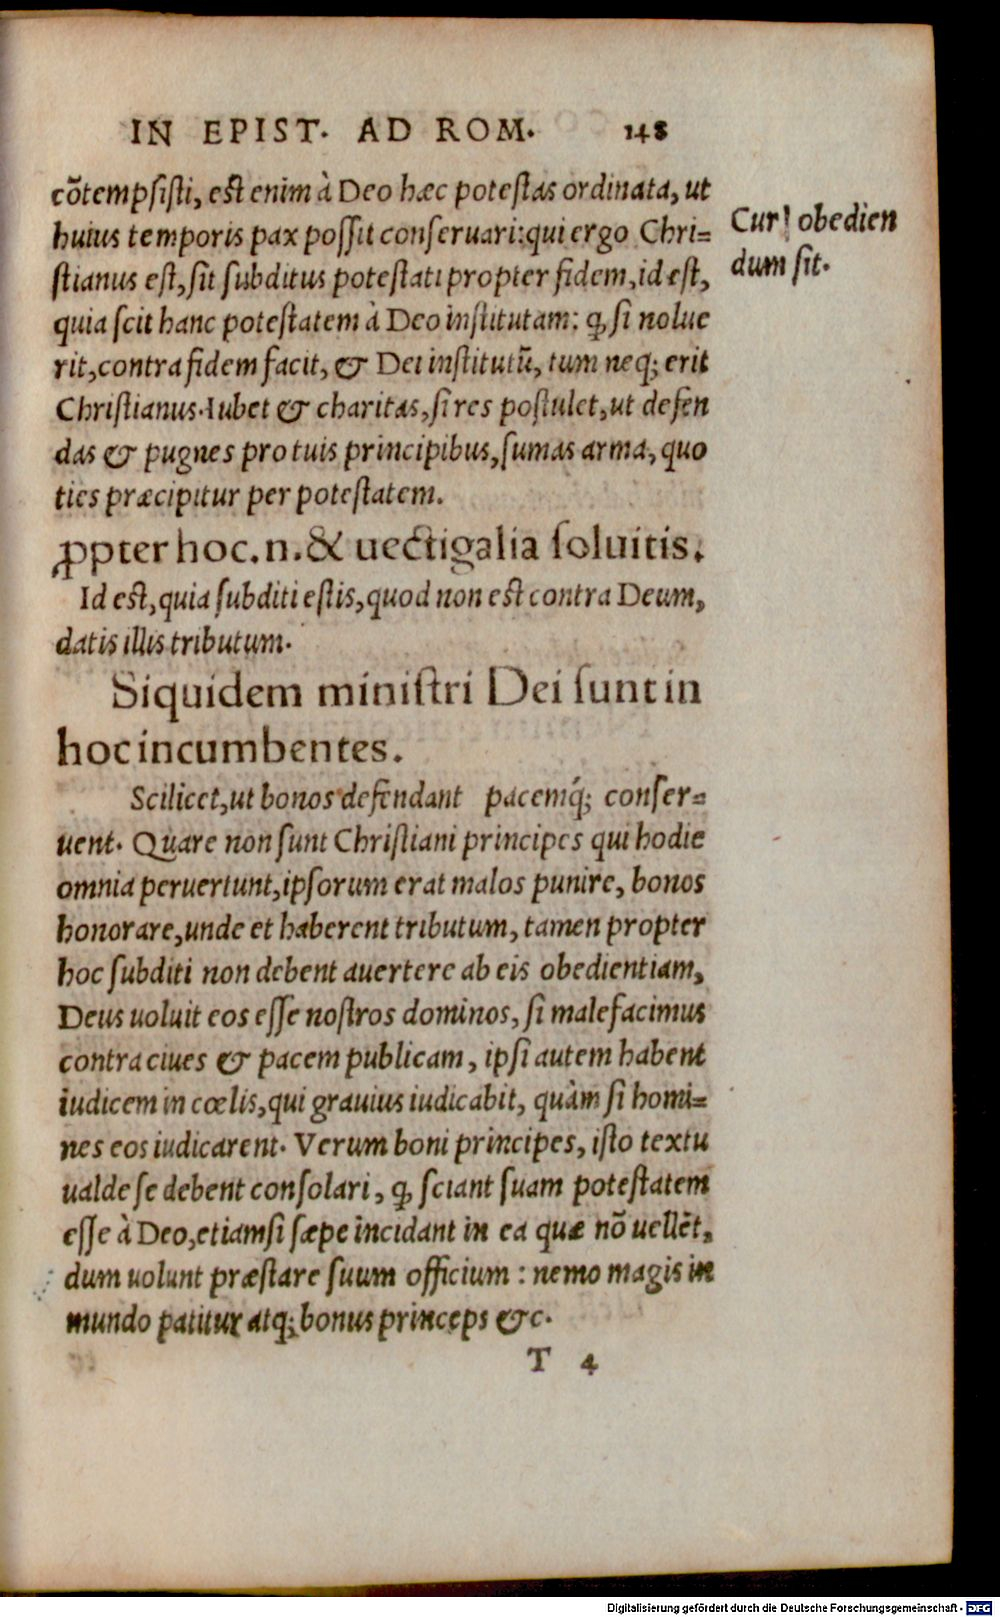 IN EPIST. AD ROM. 148
cõtempsisti, est enim à Deo hæc potestas ordinata, ut
huius temporis pax possit conseruari: qui ergo Chri=
stianus est, sit subditus potestati propter fidem, id est,
quia scit hanc potestatem à Deo institutam: ꝙ si nolue
rit, contra fidem facit, & Dei institutũ, tum neq; erit
Christianus. Iubet & charitas, si res postulet, ut defen
das & pugnes pro tuis principibus, sumas arma, quo
ties præcipitur per potestatem.
Cur obedien
dum sit.
ꝓpter hoc. n. & uectigalia soluitis.
Id est, quia subditi estis, quod non est contra Deum,
datis illis tributum.
Siquidem ministri Dei sunt in
hoc incumbentes.
Scilicet, ut bonos defendant pacemq́; conser=
uent. Quare non sunt Christiani principes qui hodie
omnia peruertunt, ipsorum erat malos punire, bonos
honorare, unde et haberent tributum, tamen propter
hoc subditi non debent auertere ab eis obedientiam,
Deus uoluit eos esse nostros dominos, si malefacimus
contra ciues & pacem publicam, ipsi autem habent
iudicem in cœlis, qui grauius iudicabit, quàm si homi=
nes eos iudicarent. Verum boni principes, isto textu
ualde se debent consolari, ꝙ sciant suam potestatem
esse à Deo, etiamsi sæpe incidant in ea quæ nõ uellẽt,
dum uolunt præstare suum officium: nemo magis in
mundo patitur atq; bonus princeps &c.
T 4
Digitalisierung gefördert durch die Deutsche Forschungsgemeinschaft - DFG